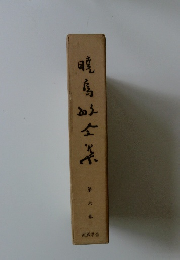 暁烏敏全集
第六巻